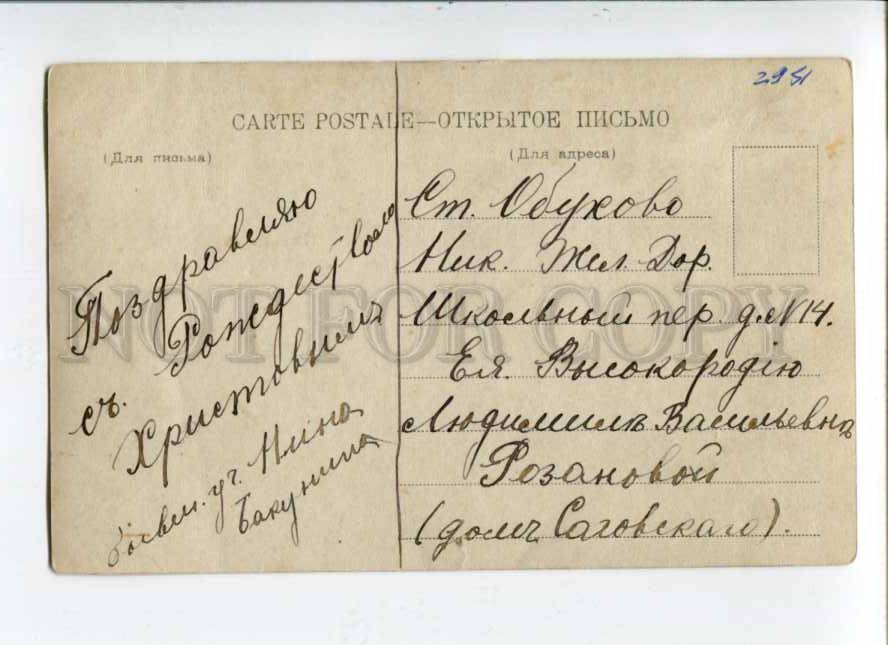 2951
CARTE POSTALE—ОТКРЫТОЕ ПИСЬМО
(Для письма)
Поздравляю
съ Рождествомъ
Христовымъ
уч. Нина
Бакунина
(Для адреса)
Ст. Обухово
Ник. Жел. Дор.
Школьный пер. д. №14.
Ея Высокородію
Людмилѣ Васильевнѣ
Розановой
(домъ Саговскаго).
NOT FOR COPY